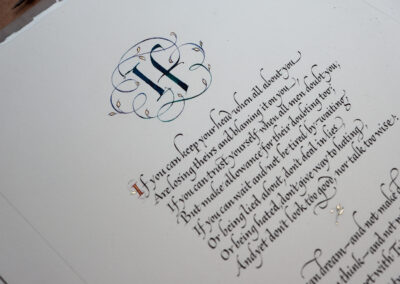 If
If you can keep your head when all about you
Are losing theirs and blaming it on you,
If you can trust yourself when all men doubt you,
But make allowance for their doubting too;
If you can wait and not be tired by waiting,
Or being lied about, don't deal in lies,
Or being hated, don't give way to hating,
And yet don't look too good, nor talk too wise:
can dream—and not make d
think—and not m
et with Tri